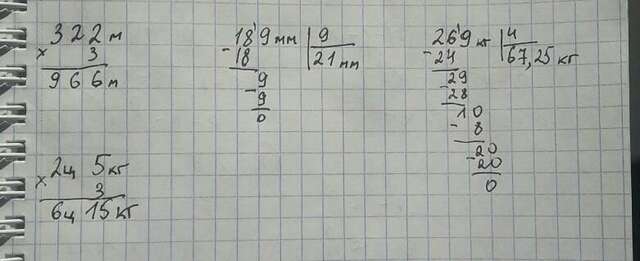 322м
× 3
966м
2ц 5кг
× 3
6ц 15кг
18'9мм | 9
-18 | 21мм
9
-9
0
26'9кг | 4
-24 | 67,25кг
29
-28
10
- 8
20
-20
0